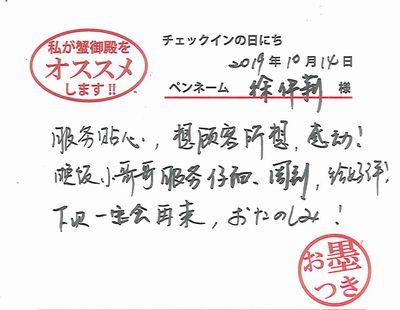 私が蟹御殿を
オススメ
します!!
チェックインの日にち
2019年10月14日
ペンネーム 徐怀新 様
服务贴心，想顾客所想，感动！
晚饭小哥哥服务仔细、周到，给好评！
下只一定会再来，おたのしみ！
お墨
つき